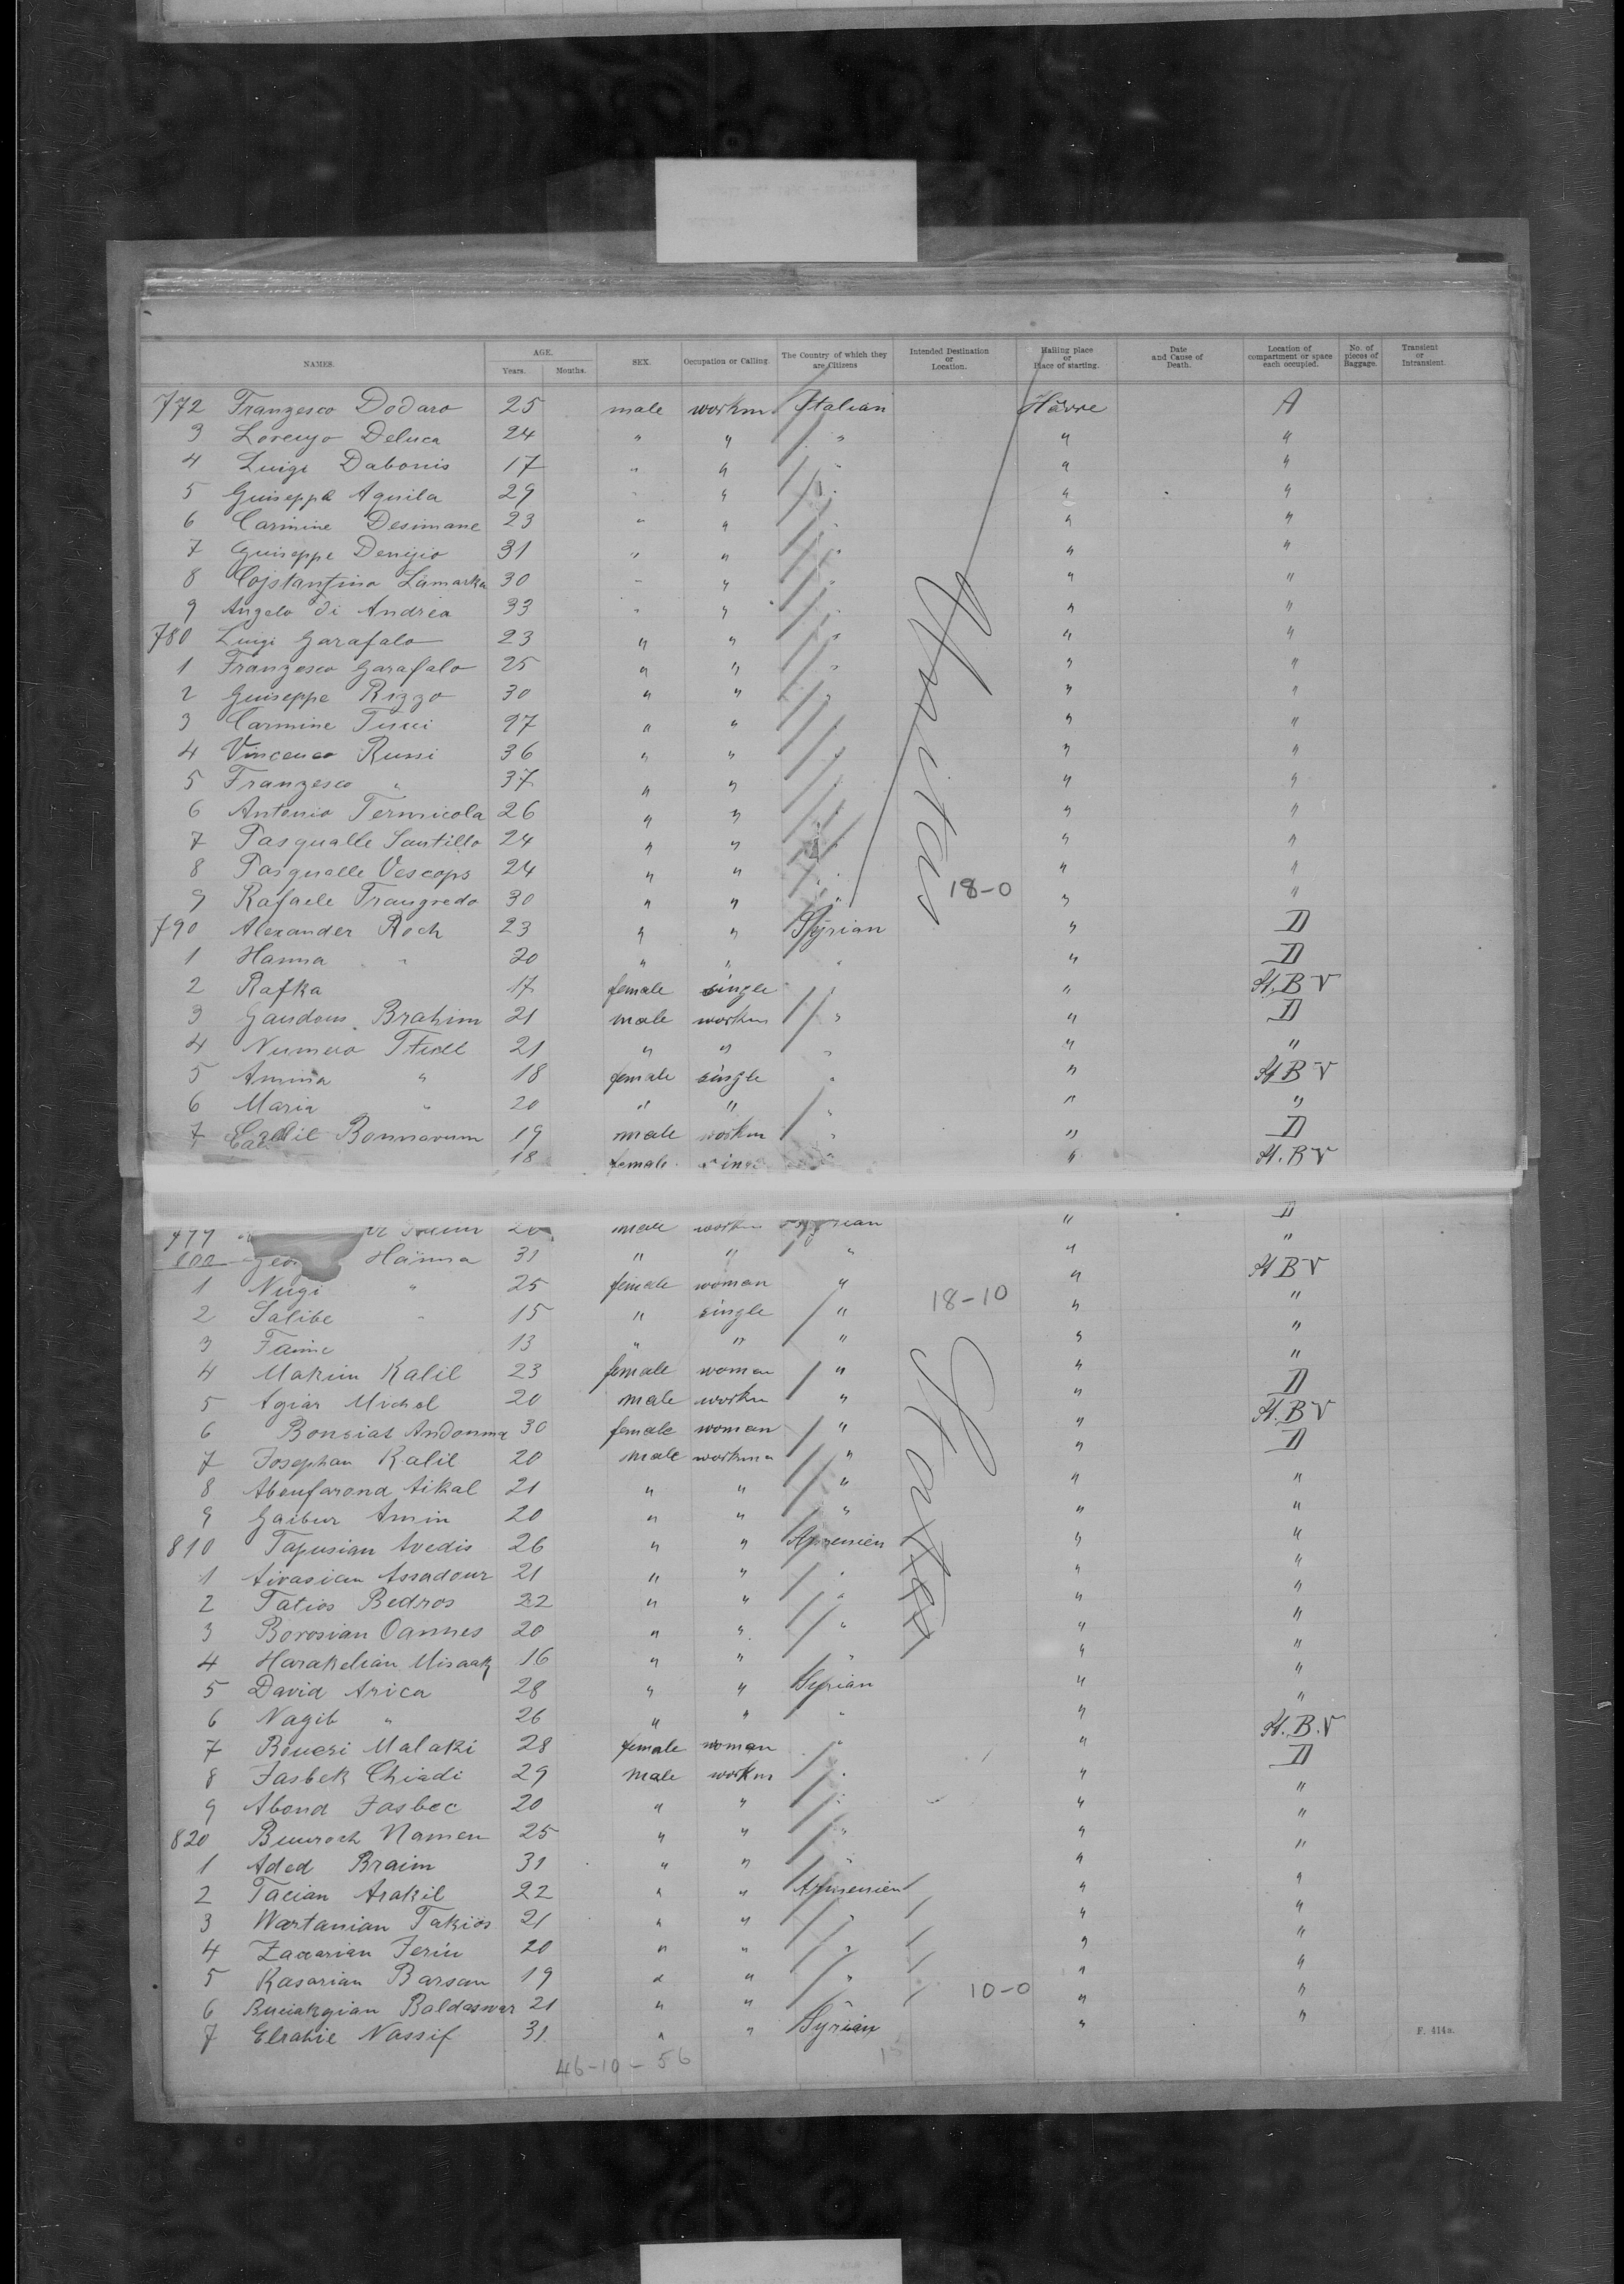 NAMES. AGE. Years. Months. SEX. Occupation or Calling. The Country of which they are Citizens Intended Destination or Location. Hailing place or Place of starting. Date and Cause of Death. Location of compartment or space each occupied. No. of pieces of Baggage. Transient or Intransient.
772 Franzesco Dodaro 25 male workm Italian Hâvre A
3 Lorenzo Deluca 24 " " " " "
4 Luigi Dabonis 17 " " " " "
5 Guiseppe Aquila 29 " " " " "
6 Carmine Desimane 23 " " " " "
7 Guiseppe Denizio 31 " " " " "
8 Cojstantino Lamarka 30 " " " " "
9 Angelo di Andrea 33 " " " " "
780 Luigi Garafalo 23 " " " " "
1 Franzesco Garafalo 25 " " " " "
2 Guiseppe Rizzo 30 " " " " "
3 Carmine 27 " " " "
4 Vincenco Russi 36 " " " " "
5 Franzesco " 37 " " " "
6 Antonio Termicola 26 " " " " "
7 Pasqualle Santillo 24 " " " "
8 Pasqualle Vescops 24 " " " " "
United States
18-0
9 Rafaele Trangredo 30 " " " " "
790 Alexander Roch 23 " " Syrian " D
1 Hanna " 20 " " " " D
2 Rafka 17 female single " " H.B V
3 Gaudous Brahim 21 male workm " " D
4 Numero 21 " " " " "
5 Amina " 18 female single " " H B V
6 Maria " 20 " " " " "
7 Callil Bonnavum 19 male workm " " D
18 female " " H. B V
799 male workm Syrian " D
800 Hanna 31 " " " " "
1 Nugi " 25 female woman " " H B V
18-10
2 Salibe " 15 " single " " "
3 Faime 13 " " " " "
4 Makim Kalil 23 female woman " " "
5 Agiar Michel 20 male workm " " D
6 Bonsias Andonma 30 female woman " " H. B V
7 Josephan Kalil 20 male workman " " D
8 Aboufarond Aikal 21 " " " " "
9 Gaibur Amin 20 " " " " "
States
810 Tapusian Avedis 26 " " Armenien " "
1 Airasian Assadour 21 " " " " "
2 Tatios Bedros 22 " " " " "
3 Borosian Oannes 20 " " " " "
4 Harakelian Misaak 16 " " " " "
5 David Arica 28 " " Syrian " "
6 Nagib " 26 " " " " "
7 Boueri Malaki 28 female woman " " H. B. V
8 Jasbek Chiadi 29 male workm " " D
9 Abond Jasbec 20 " " " " "
820 Bumroch Namen 25 " " " " "
1 Aded Braim 31 " " " " "
2 Tacian Arakil 22 " " Armenien " "
3 Wartanian Takios 21 " " " " "
4 Zacarian Ferin 20 " " " " "
5 Kasarian Barsam 19 " " " " "
10-0
6 Baldaswar 21 " " " "
7 Elrahie Nassif 31 " " Syrian " "
46-10-56
F. 414a.